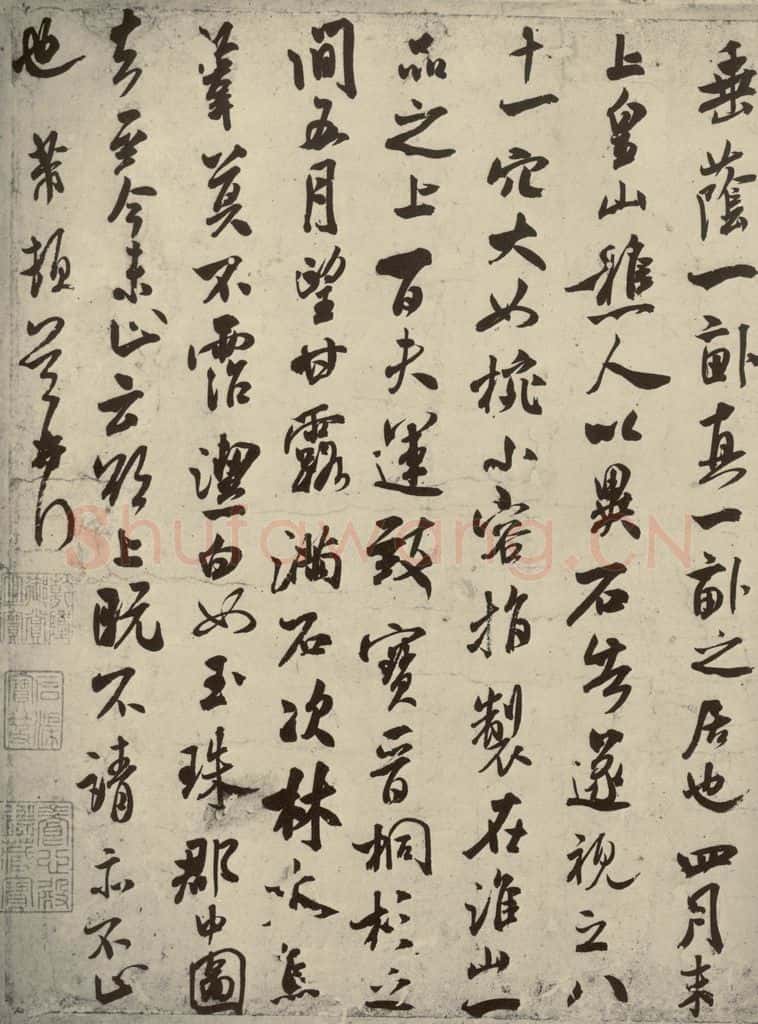 垂蔭一畝真一畝之居也四月末
上皇山樵人以異石告遂視之八
十一穴大如椀小容指製在淮山一
品之上百夫運致寶晉桐杉之
間五月望甘露滿石次林焦
葦莫不霑潔白如玉珠郡中圖
去至今未止云欲上既不請亦不止
也 芾頓首再拜
石渠寶笈
養心殿鑑藏寶
Shufawang.CN